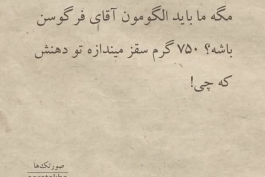 مگه ما باید الگومون آقای فرگوسن
باشه؟ ۷۵۰ گرم سقز میندازه تو دهنش
که چی!
صورتک‌ها